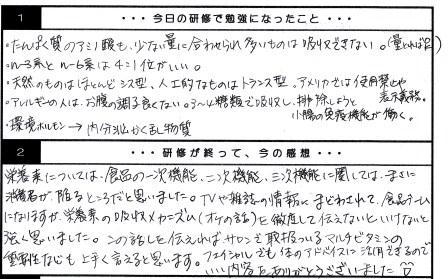 1 ・・・今日の研修で勉強になったこと・・・
・たんぱく質のアミノ酸も、少ない量に合わせられ多いものは吸収できない。(量とれば
・n-3系とn-6系は4:1位がいい。
・天然のものはほとんどシス型、人工的なものはトランス型、アメリカでは使用禁止や
表示義務。
・アレルギーの人は、お腹の調子良くない。3〜4糖類で吸収し、排除しようと
小腸の免疫機能が働く。
・環境ホルモン→内分泌かく乱物質
2 ・・・研修が終って、今の感想・・・
栄養素については、食品の一次機能、二次機能、三次機能に関しては、まさに
消費者が陥るところだと思いました。TVや雑誌の情報にまどわされて、食品ブーム
になりますが、栄養素の吸収メカニズム(オケの話)を徹底して伝えないといけないと
強く思いました。この話しを伝えればサロンで取扱っているマルチビタミンの
重要性なども上手く言えると思います。フェイシャルでも体のアドバイスに活用できるので
いい内容でありがとうございました